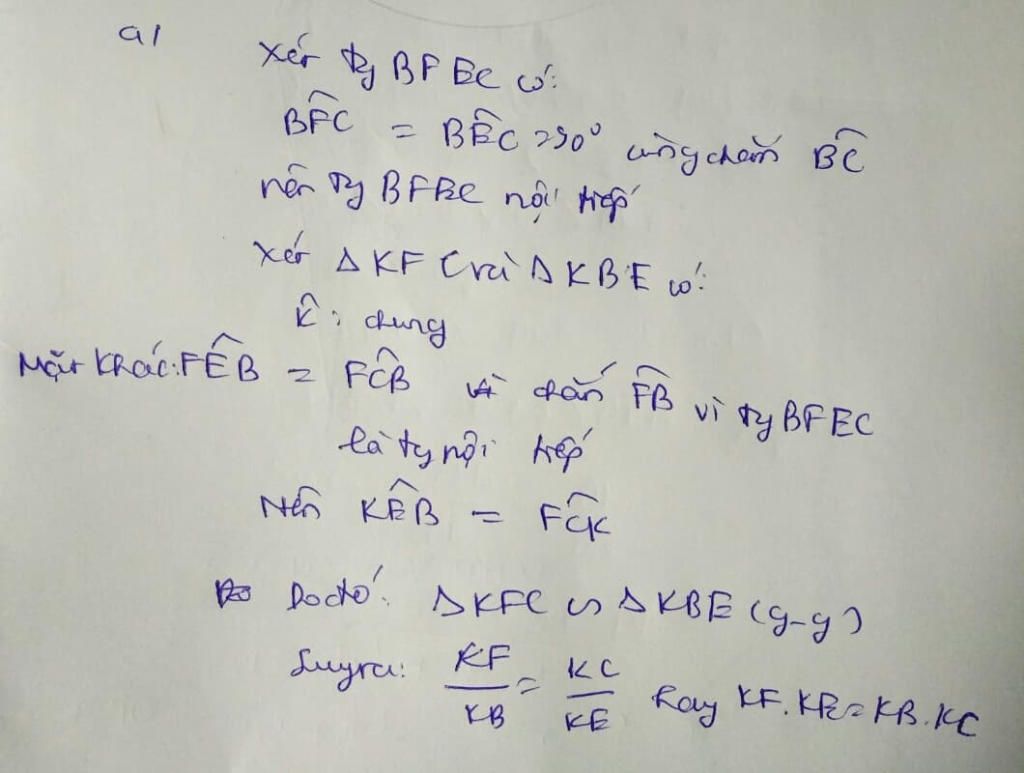 a/
Xét tg BFEC có:
BF̂C = BÊC = 90° cùng chắn BC
nên tg BFEC nội tiếp
Xét Δ KFC và Δ KBE có:
K̂: chung
Mặt khác: FÊB = FĈB vì chắn FB vì tg BFEC
là tg nội tiếp
Nên KÊB = FĈK
Do đó: Δ KFC ∽ Δ KBE (g-g)
Suy ra: KF/KB = KC/KE hay KF.KE = KB.KC